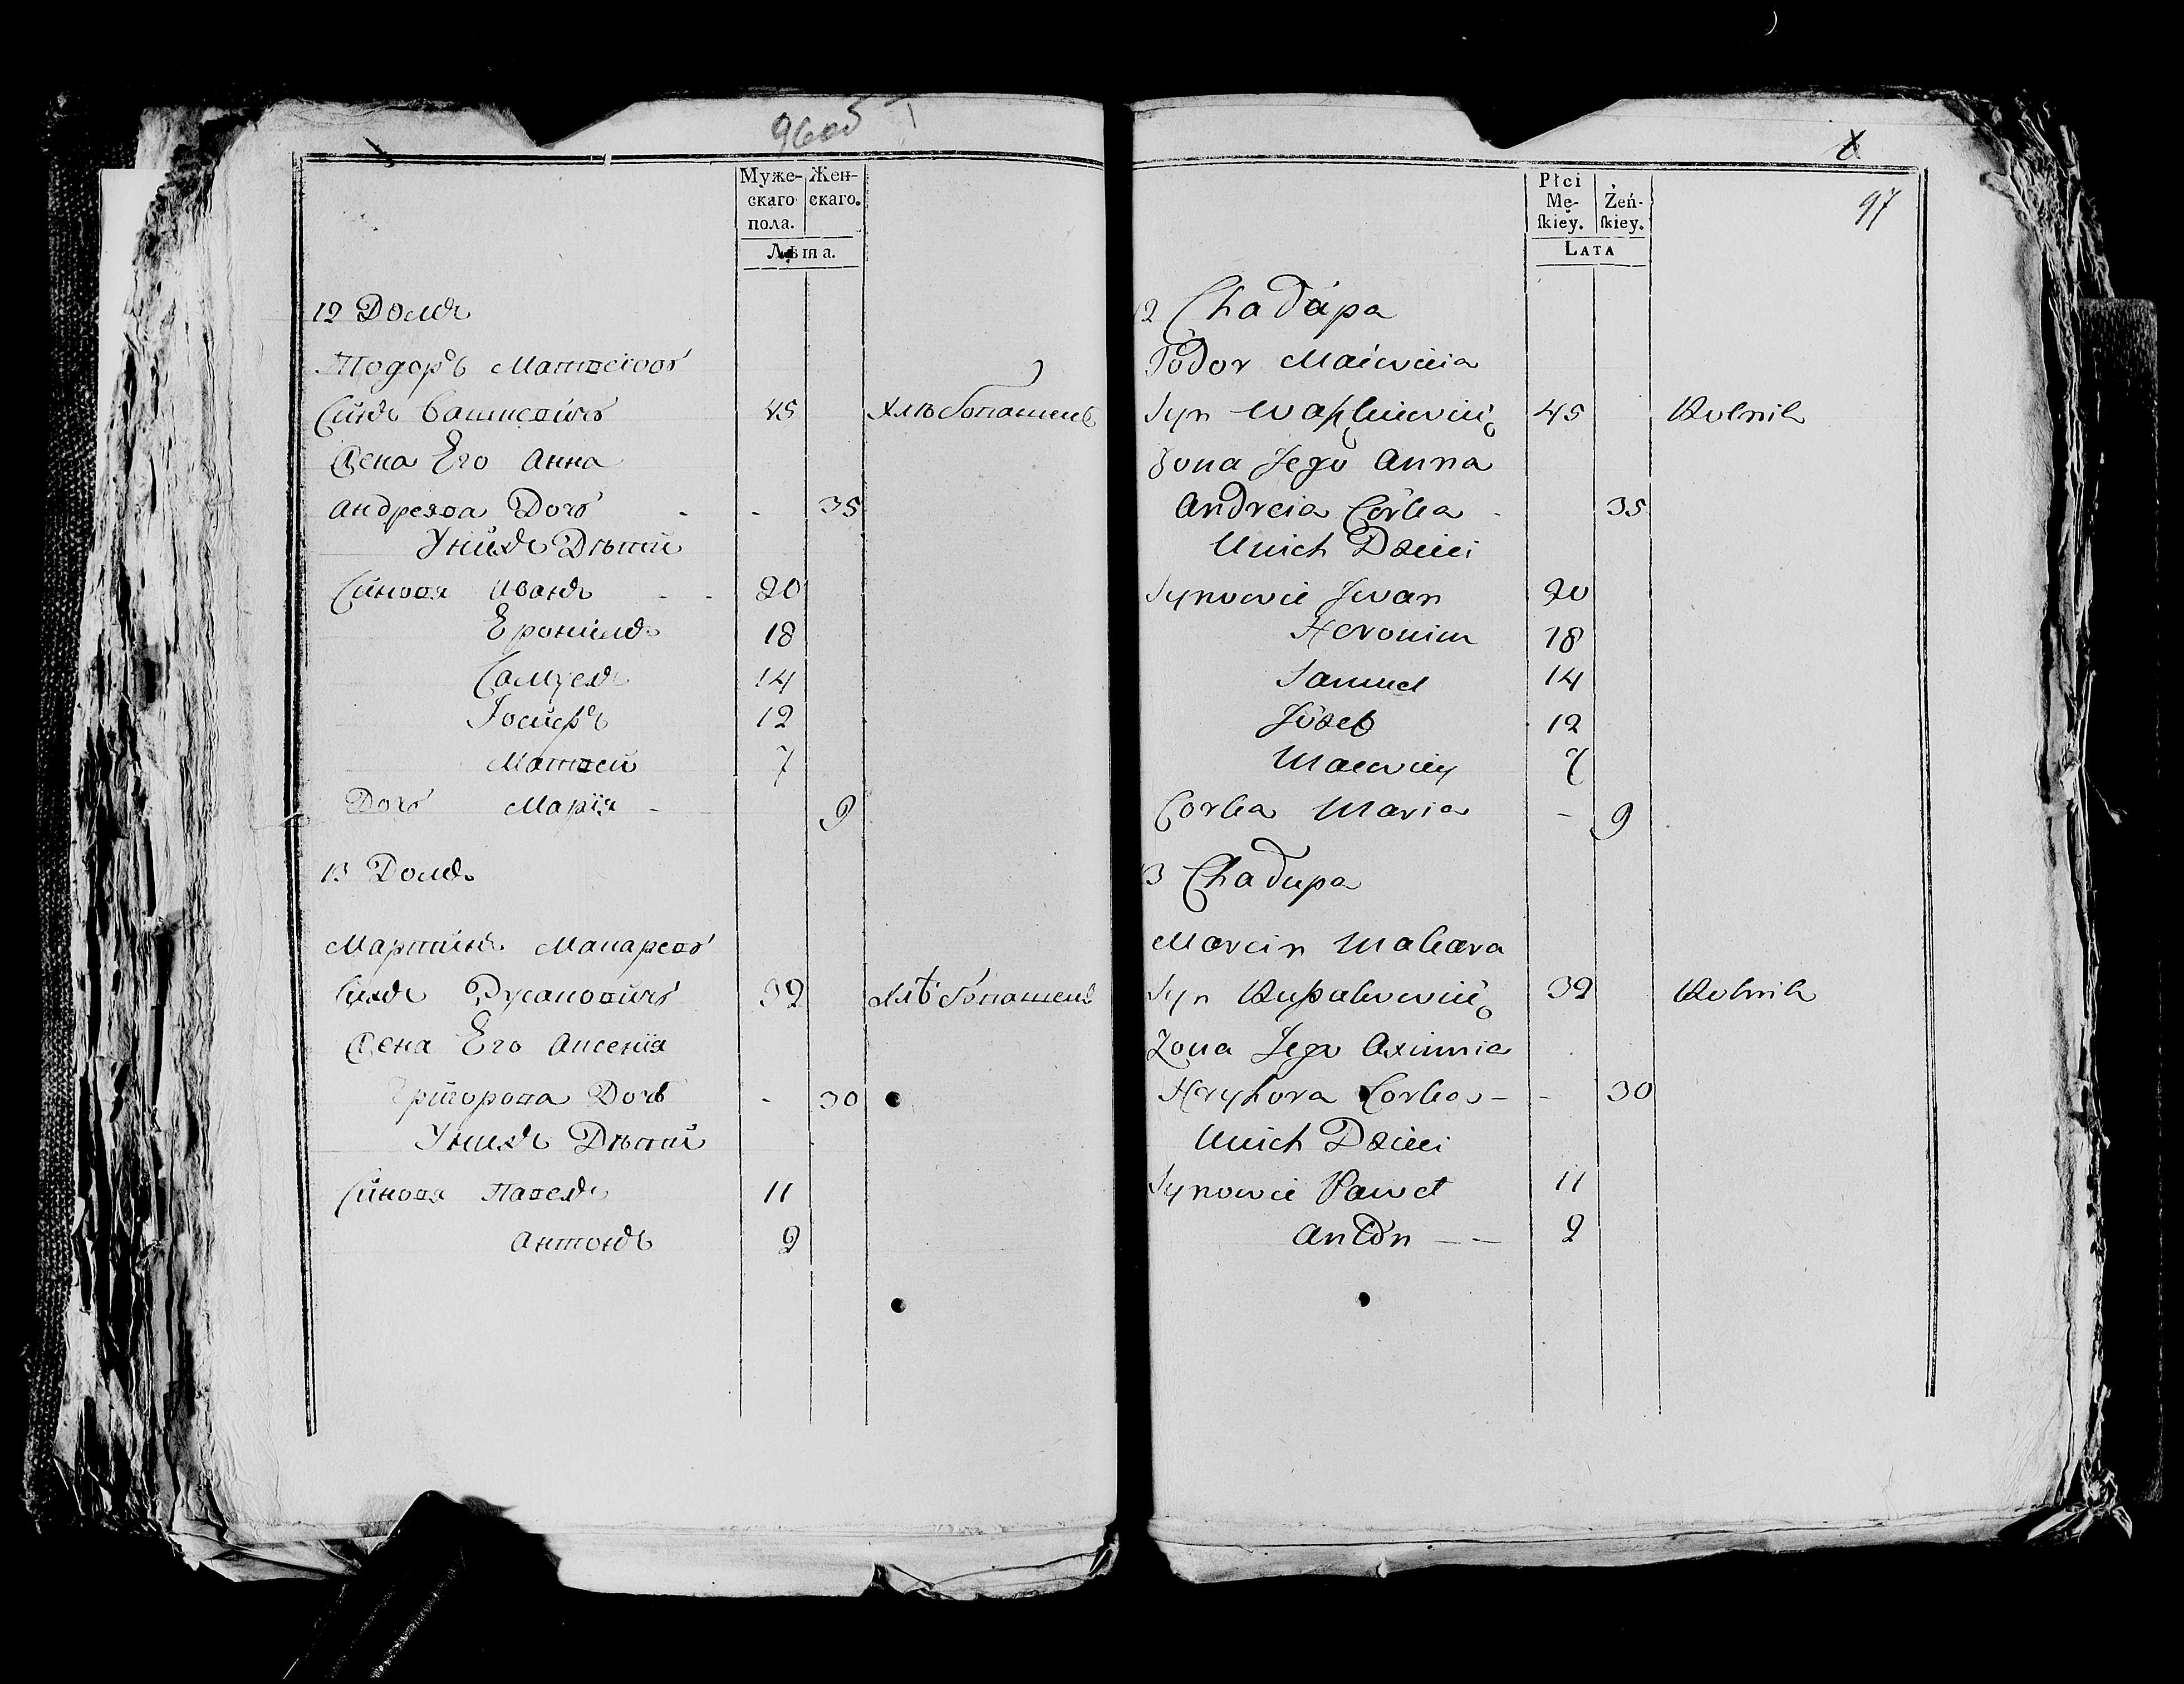 96об
Муже-
скаго
пола.
Жен-
скаго.
Лѣта.
12 Домъ
Тодоръ Матвеювъ
Сынъ Вашкевичъ 45 Хлебопашецъ
Жена Его Анна
Андреява Дочъ - - 35
У нихъ Дѣти
Сыновя Иванъ - - 20
Еронимъ 18
Самуел 14
Іосифъ 12
Матвей 7
Дочъ Марія - 9
13 Домъ
Мартинъ Макаревъ
Синъ 32 Хлѣбопашец
Жена Его Аксенія
Григорова Дочъ - 30
У нихъ Дѣти
Синовя Павелъ 11
Антонъ 2
97
Płci
Mę-
ſkiey.
Żeń-
ſkiey.
LATA
12 Chałupa
Todor Maćwieia
Syn Waſzkiewicz 45 Rolnik
Żona Jego Anna
Andreia Córka - 35
U nich Dzieci
Synowie Jwan 20
Heronim 18
Samuel 14
Józef 12
Maćwiey 7
Corka Maria - 9
13 Chałupa
Marcin Makara
Syn Ruſakowicz 32 Rolnik
Żona Jego Axinnia
Hryhora Corka - - 30
U nich Dzieci
Synowie Paweł 11
Antón - - 2